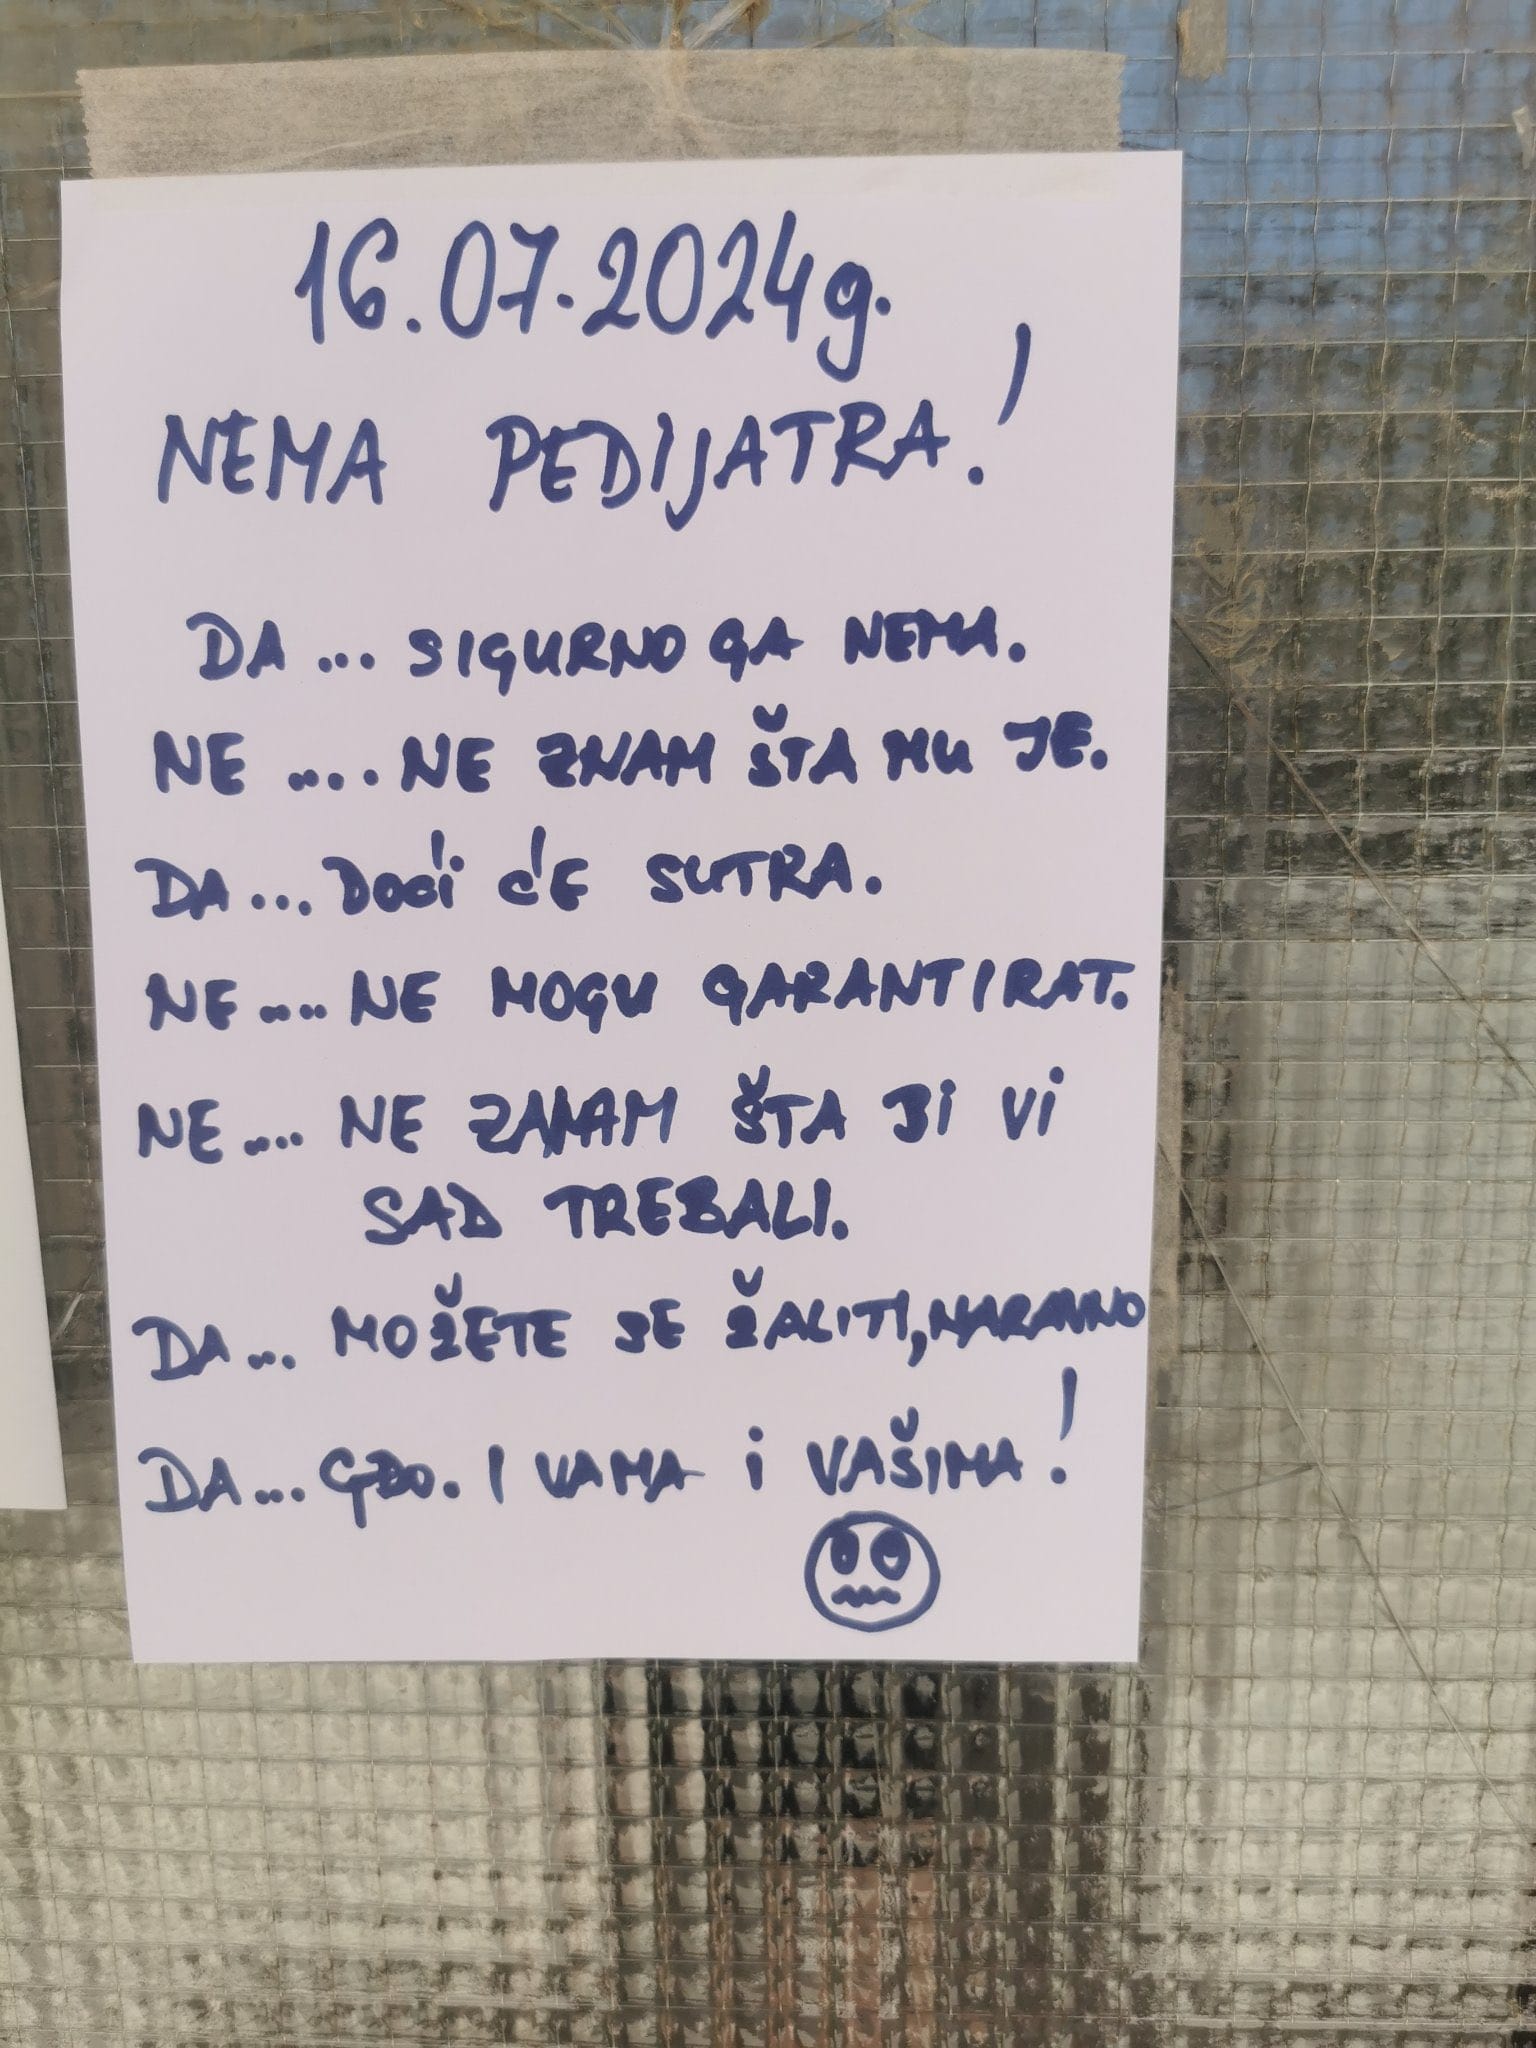 16.07.2024g.
NEMA PEDIJATRA!
DA... SIGURNO GA NEMA.
NE .... NE ZNAM ŠTA MU JE.
DA... DOĆI ĆE SUTRA.
NE .... NE MOGU GARANTIRAT.
NE .... NE ZNAM ŠTA BI VI
SAD TREBALI.
DA... MOŽETE SE ŽALITI, NARAVNO
DA... GDO. I VAMA i VAŠIMA!